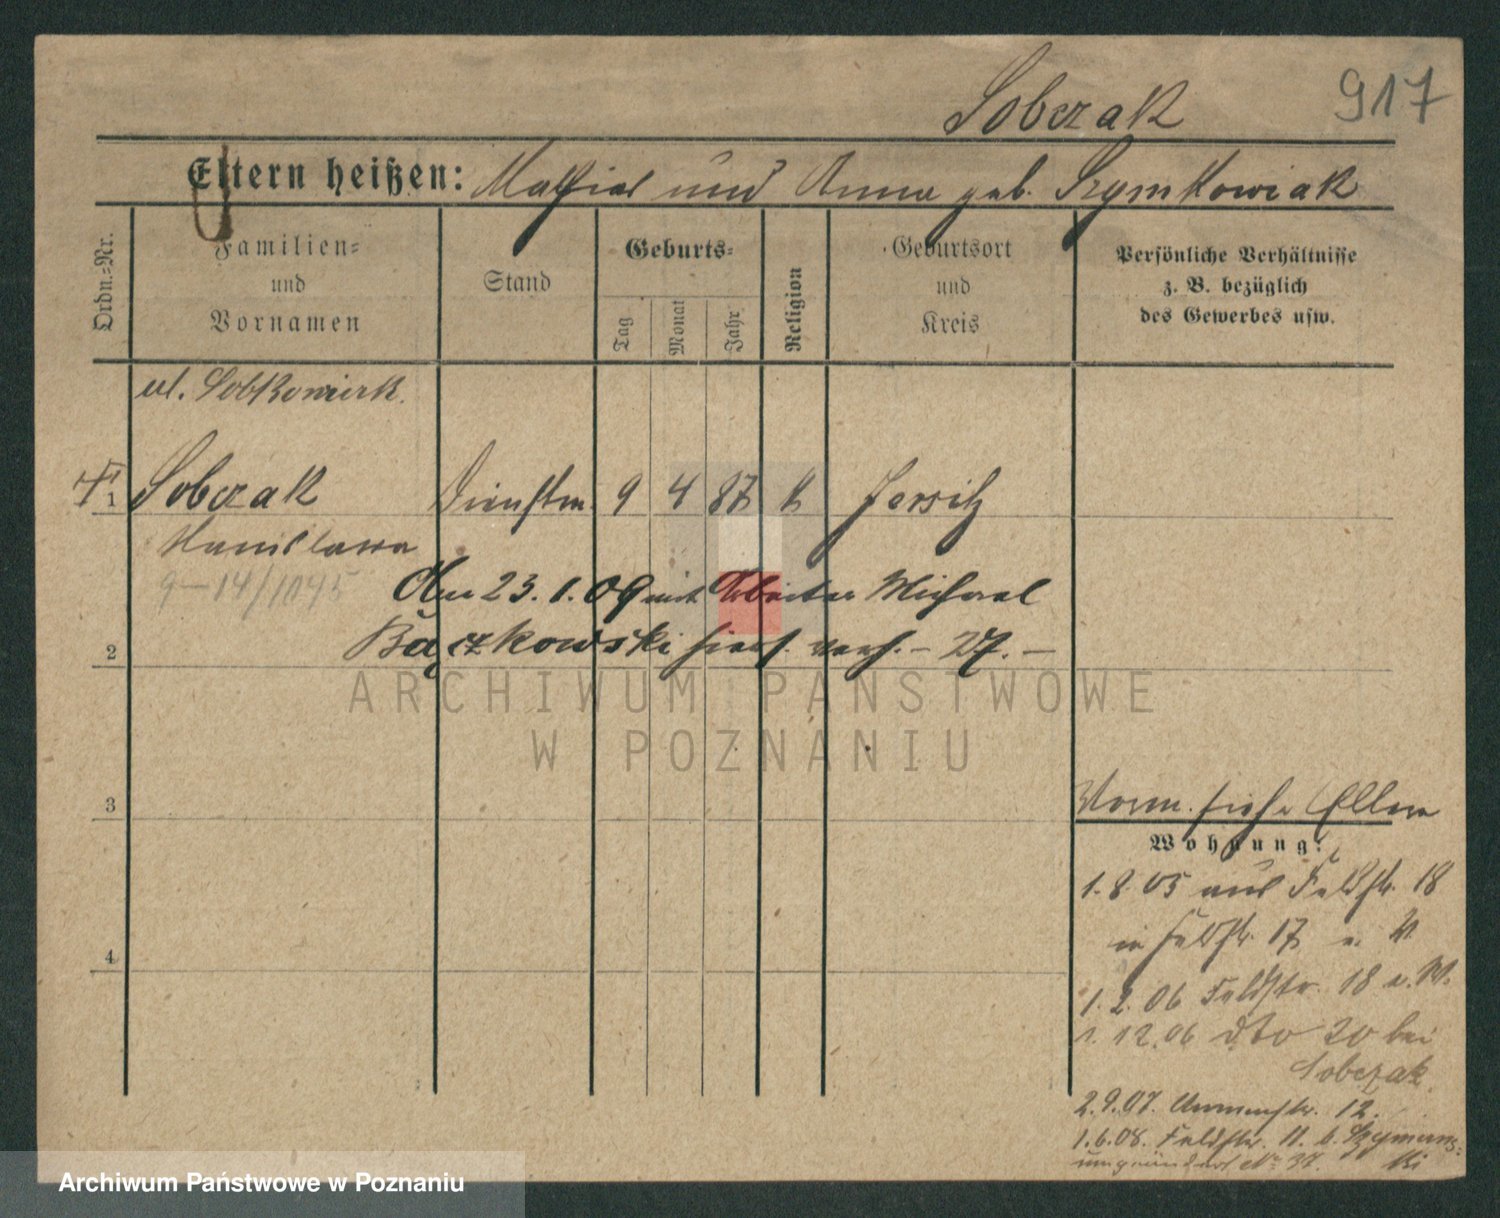 917
Sobczak
Eltern heißen: Mathias und Anna geb. Szymkowiak
Ordn.=Nr.
Familien=
und
Vornamen
Stand
Geburts=
Tag
Monat
Jahr
Religion
Geburtsort
und
Kreis
Persönliche Verhältnisse
z. B. bezüglich
des Gewerbes usw.
1
Sobczak Dienstm. 9 4 87 k Jersitz
Stanislawa
9-14/1045
Am 23.1.09 mit Arbeiter Michael
Bączkowski hier verh. - 27. -
2
3
4
Vorm. siehe Eltern
Wohnung:
1.8.05 aus Feldstr. 18
in Feldstr. 17 u. V.
1.2.06 Feldstr. 18 u. W.
1.12.06 dto 20 bei
Sobczak
2.9.07. 12.
1.6.08. Feldstr. 11. b. Szymans=
ki
umgeändert No 37.
ARCHIWUM PAŃSTWOWE
W POZNANIU
Archiwum Państwowe w Poznaniu